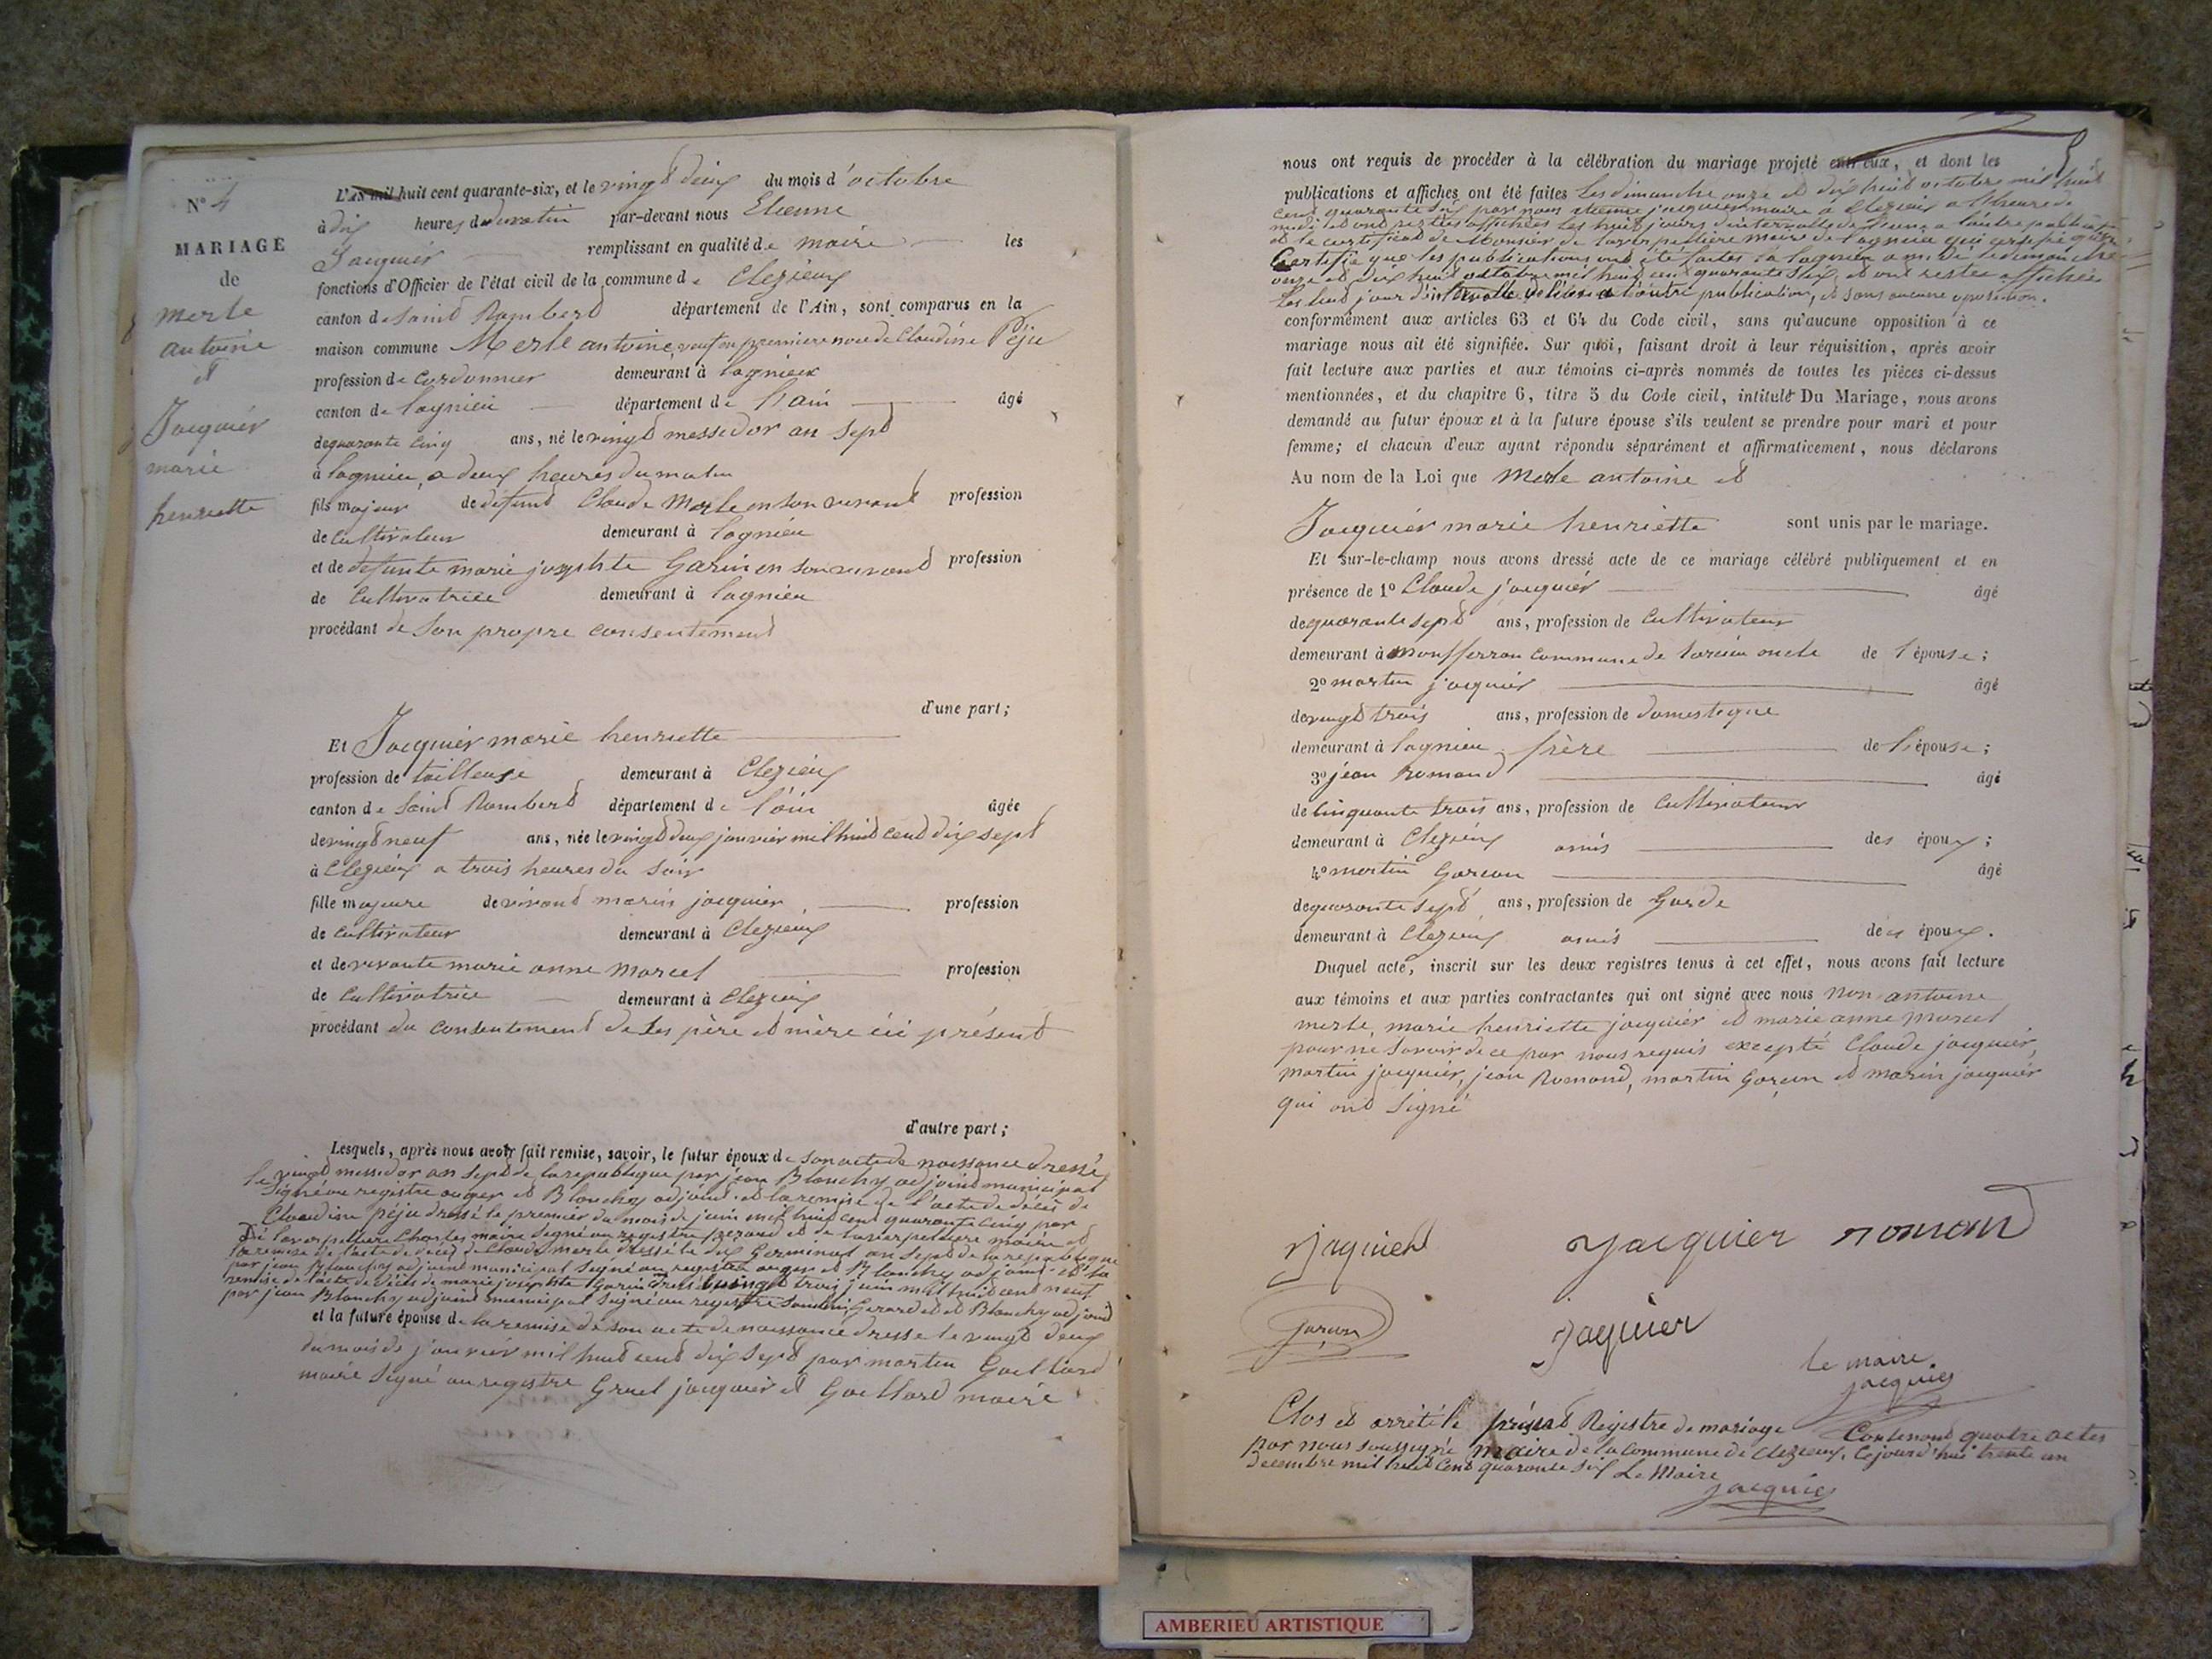 N° 4
MARIAGE
de
merle
antoine
et
Jacquiér
marie
henriette
L'AN mil huit cent quarante-six, et le vingt deux du mois d'octobre
à dix heures du matin par-devant nous Etienne
Jacquiér remplissant en qualité de maire les
fonctions d'Officier de l'état civil de la commune de Cleyzieux
canton de Saint Rambert département de l'Ain, sont comparus en la
maison commune Merle antoine, veuf en premiere noce de Claudine Péju
profession de cordonnier demeurant à lagnieu
canton de lagnieu département de l'ain âgé
de quarante cinq ans, né le vingt messedor an sept
à lagnieu, a deux heures du matin
fils majeur de défunt Claude Merle en son vivant profession
de Cultivateur demeurant à lagnieu
et de defunte marie josephte Garin en son vivant profession
de Cultivatrice demeurant à lagnieu
procédant de Son propre consentement
d'une part;
Et Jacquiér marie henriette
profession de tailleuse demeurant à Clezieux
canton de Saint Rambert département de l'ain âgée
de vingt neuf ans, née le vingt deux janvier mil huit cent dix sept
à Clezieux a trois heures du Soir
fille majeure de vivant marin jacquier profession
de Cultivateur demeurant à Clezieux
et de vivante marie anne Marcel profession
de Cultivatrice demeurant à Clezieux
procédant du consentement de Ses père et mère ici présent
d'autre part;
Lesquels, après nous avoir fait remise, savoir, le futur époux de Son acte de naissance dressé
le vingt messedor an Sept de la republique par jean Blanchy adjoint municipal
Signé au registre auger et Blanchy adjoint. et la remise de l'acte de décès de
Claudine péju dressé le premier du mois de juin mil huit cent quarante cinq par
De Charles maire Signé au registre et de maire et
la remise de l'acte de décès de Claude merle dressé le dix Germinal an Sept de la republique
par jean Blanchy adjoint municipal Signé au registre auger et Blanchy adjoint. et la
remise de l'acte de décès de marie josephte Garin dressé le vingt trois juin mil huit cent neuf
par jean Blanchy adjoint municipal Signé au registre Gerard et Blanchy adjoint
et la future épouse de la remise de son acte de naissance dresse le vingt deux
du mois de janvier mil huit cent dix Sept par martin Gaillard
maire Signé au registre Gruel jacquiér et Gaillard maire
nous ont requis de procéder à la célébration du mariage projeté entr'eux, et dont les
publications et affiches ont été faites les dimanche onze et dix huit octobre mil huit
cent quarante Six par nous etienne jacquier maire a Clezieux a l'heure de
midi et ont restées affichées les huit jours d'intervalle de l'une a l'autre publication
et le certificat de Monsieur de maire de lagnieu qui
Certifie que les publications ont été faites a lagnieu a midi le dimanche
onze et dix huit octobre mil huit cent quarante Six, et ont restée affichée
les huit jour d'intervalle de l'une a l'autre publication, et sans aucune oposition.
conformément aux articles 63 et 64 du Code civil, sans qu'aucune opposition à ce
mariage nous ait été signifiée. Sur quoi, faisant droit à leur réquisition, après avoir
fait lecture aux parties et aux témoins ci-après nommés de toutes les pièces ci-dessus
mentionnées, et du chapitre 6, titre 5 du Code civil, intitulé Du Mariage, nous avons
demandé au futur époux et à la future épouse s'ils veulent se prendre pour mari et pour
femme; et chacun d'eux ayant répondu séparément et affirmativement, nous déclarons
Au nom de la Loi que Merle antoine et
Jacquiér marie henriette sont unis par le mariage.
Et sur-le-champ nous avons dressé acte de ce mariage célébré publiquement et en
présence de 1° Claude jacquiér âgé
de quarante sept ans, profession de Cultivateur
demeurant à Montferran commune de torcieu oncle de l'épouse;
2° martin jacquiér âgé
de vingt trois ans, profession de domestique
demeurant à lagnieu frère de l'épouse;
3° jean Romand âgé
de Cinquante trois ans, profession de Cultivateur
demeurant à Clezieux amis des époux;
4° martin Garcon âgé
de quarante sept ans, profession de Garde
demeurant à Clezieux amis des époux.
Duquel acte, inscrit sur les deux registres tenus à cet effet, nous avons fait lecture
aux témoins et aux parties contractantes qui ont signé avec nous non antoine
merle, marie henriette jacquiér et marie anne marcel
pour ne Savoir de ce par nous requis excepté Claude jacquiér,
martin jacquiér, jean Romand, martin Garcon et marin jacquiér
qui ont Signé
Jaquier Jacquier romand
Garcon Jaquier
le maire
jacquier
Clos et arrêté le présent Régistre de mariage Contenant quatre actes
par nous soussigné maire de la commune de Clezieux. Cejourd'hui trente un
Decembre mil huit Cent quarante Six Le Maire
jacquier
AMBERIEU ARTISTIQUE